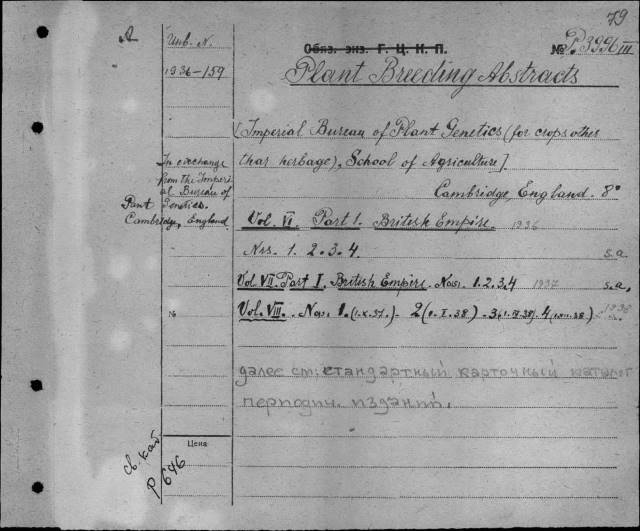 79
A
Инв. N.
Обяз. экз. Г. Ц. К. П.
№ P 3996 III
1936-159
Plant Breeding Abstracts
[Imperial Bureau of Plant Genetics (for crops other
than herbage), School of Agriculture]
In exchange
from the Imperi
al Bureau of
Pant Genetics.
Cambridge, England
Cambridge, England. 8°
Vol. VI. Part 1. British Empire. 1936
Nrs. 1. 2. 3. 4. s.a.
Vol VII. Part I. British Empire. Nos. 1. 2. 3. 4 1937 s.a.
№
Vol. VIII. Nos. 1. (1.X.37.) - 2 - 3 - 4 1938
далее см: стандартный карточный каталог
периодич. изданий.
Цена
св. кат
P 646